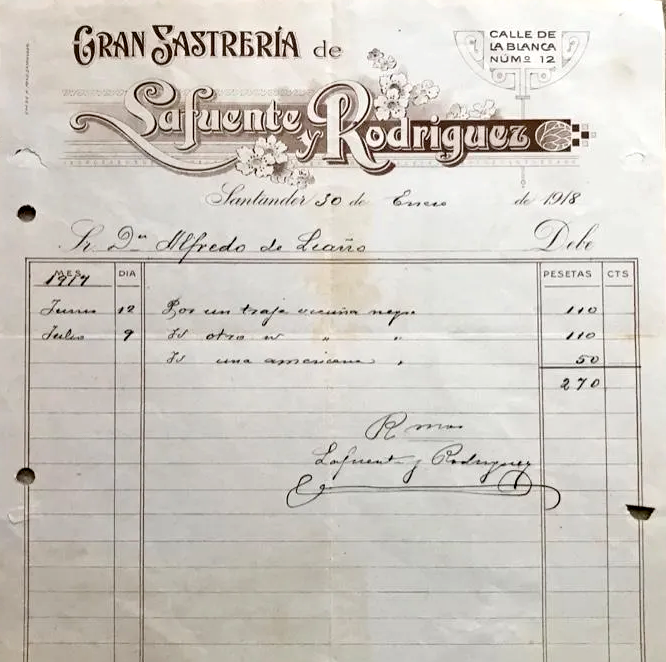 GRAN SASTRERÍA de
CALLE DE
LA BLANCA
NÚMº 12
Lafuente
y Rodriguez
Santander 30 de Enero de 1918
Sr. Dn Alfredo de Liaño Debe
MES DIA PESETAS CTS
1917
Junio 12 Por un traje vicuña negro 110
Julio 9 Id otro id " " 110
Id una americana " 50
270
Lafuente y Rodriguez